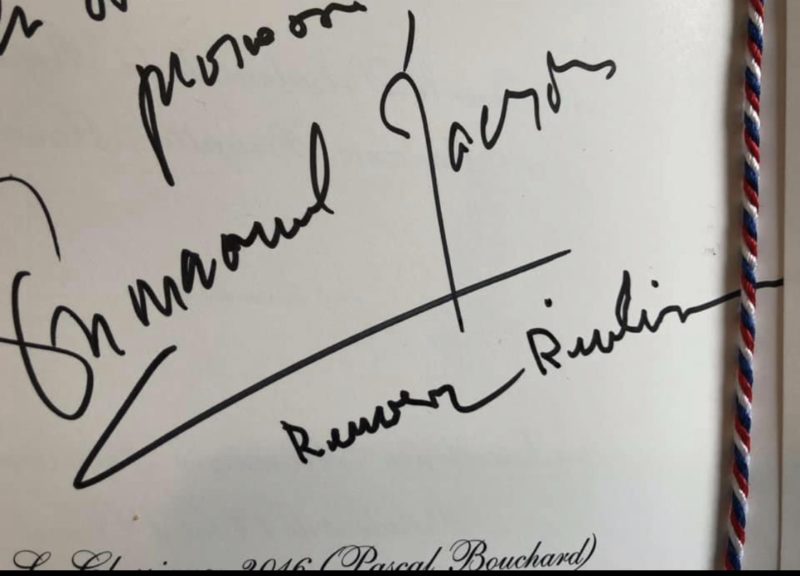 Emmanuel Macron
Reuven Rivlin
2016 (Pascal Bouchard)